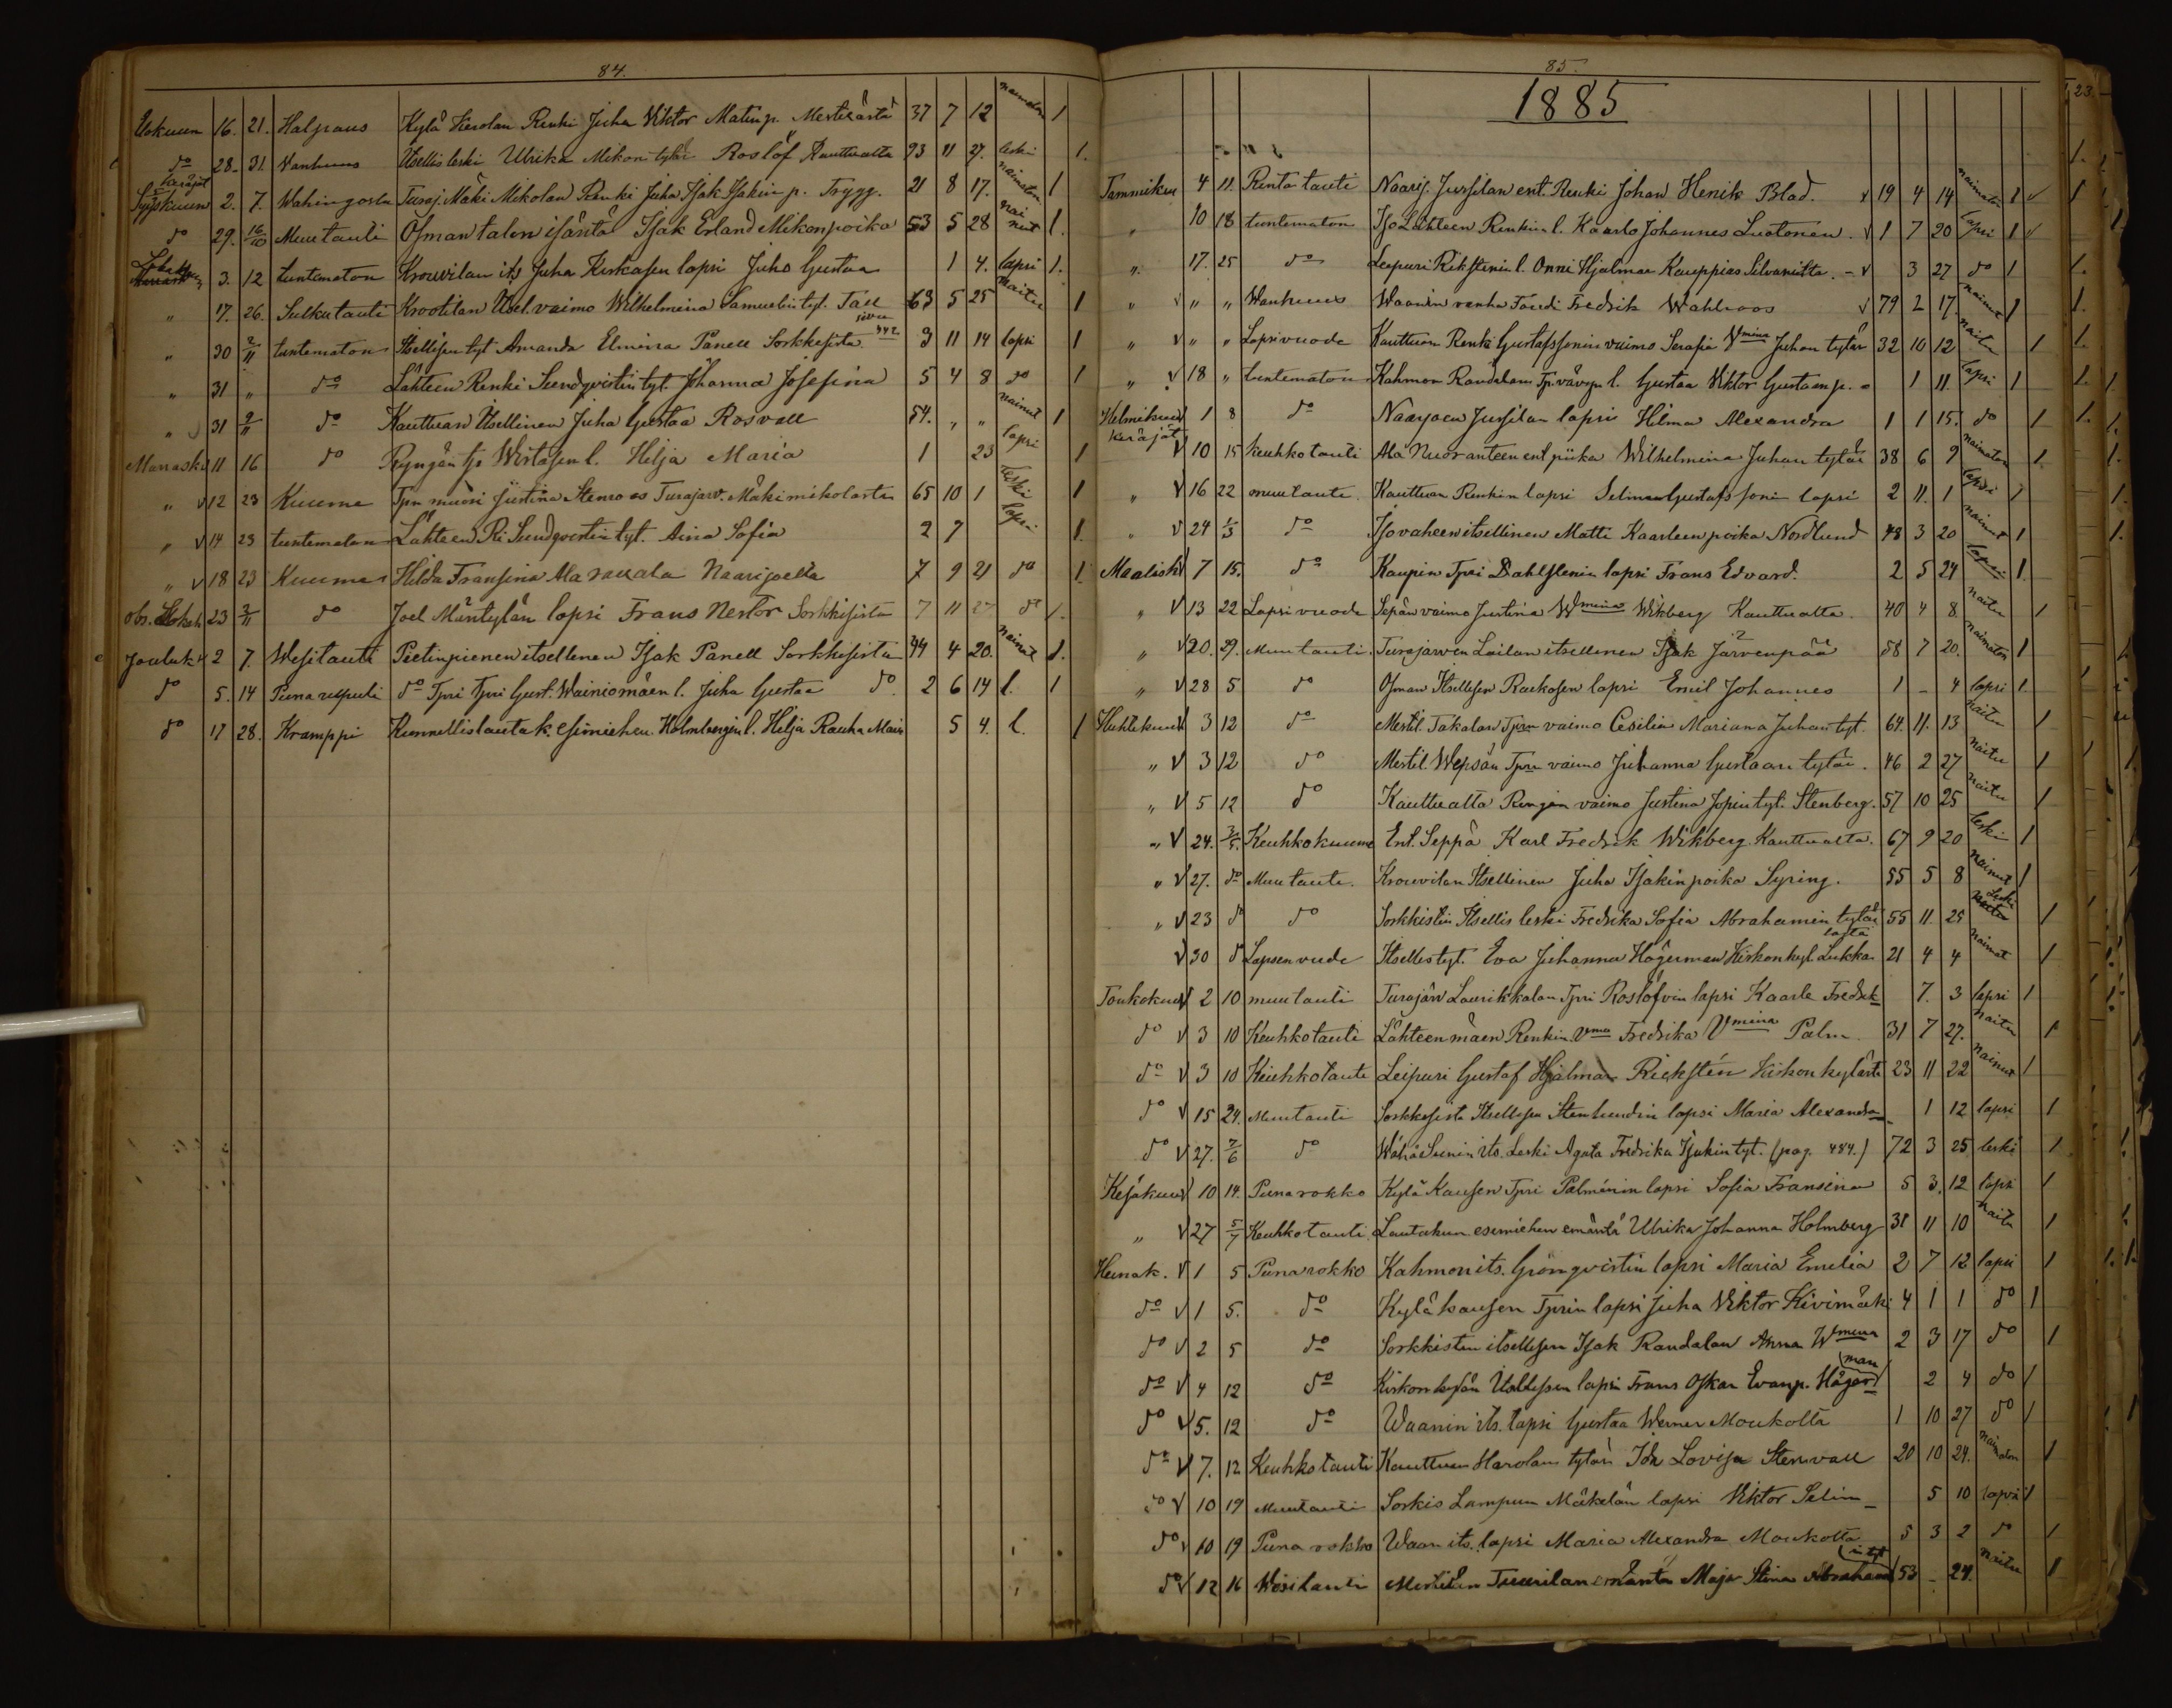 84.
Elokuun 16. 21. Halpaus Kylä Kierolan Renki Juha Viktor Matin p. Mestilästä 37 7 12 naimaton 1
do 28. 31. Vanhuus Itsellis leski Ulrika Mikon tytär Roslöf Kauttualta 93 11 27. leski 1.
Syyskuun 2. 7. Wahingosta Turaj. Mäki Mikolan Renki Juha Isak Isakin p. Trygg. 21 8 17. naimaton 1
do 29. 16/10 Muu tauti Osman talon isäntä Isak Erland Mikonpoika 53 5 28 nainut 1.
3. 12 tuntematon Krouvilan its Juha Kiskasen lapsi Juho Gustaa 1 4. lapsi 1.
" 17. 26. Sulku tauti Krootilan Itsel. vaimo Wilhelmina Samuelin tyt. Tall 63 5 25 naitu 1
" 30 2/11 tuntematon Itsellisen tyt Amanda Elmina Panell Sorkkisista 3 11 14 lapsi 1
" 31 " do Lähteen Renki Sundqvistin tyt. Johanna Josefina 5 4 8 do 1
" 31 9/11 do Kauttuan Itsellinen Juha Gustaa Rosvall 54. " " nainut 1
Marrask 11 16 do Ryngän tp Wirtasen l. Hilja Maria 1 23 lapsi 1
" v 12 23 Kuume Tpn muori Justina Stenroos Turajarv. Mäkimikolasta 65 10 1 leski 1
" v 14 23 tuntematon Lähteen Ri Sundqvistin tyt. Aina Sofia 2 7 lapsi 1.
" v 18 23 Kuume Hilda Fransina Ala rauala Naarijoelta 7 9 21 do 1.
obs. Lokak 23 2/11 do Joel Mäntylän lapsi Frans Nestor Sorkkisista 7 11 27 do 1.
Jouluk 2 7. Wesitauti Pietinpienen itsellenen Isak Panell Sorkkisista 44 4 20. nainut 1.
do 5. 14 Puna do Tpri Gust. Wainiomäen l. Juha Gustaa do. 2 6 14 l. 1
do 17 28. Kramppi Kunnellislautak. esimiehen Holmbergin l. Hilja Rauha Maria 5 4. l. 1
85.
1885
Tammikuu 4 11. Rinta tauti Naarij. Jussilan ent. Renki Johan Henik Blad. v 19 4 14 naimaton 1 v
" 10 18 tuntematon Iso Lähteen Renkin l. Kaarlo Johannes Luotonen. v 1 7 20 lapsi 1 v
" 17. 25 do Leipuri Rikstenin l. Onni Hjalmar Kauppias Silvanilta. - v 3 27 do 1
" v " " Wanhuus Waanin vanha Faudi Fredrik Wahlroos v 79 2 17. nainut 1
" v " " Lapsivuode Kauttuan Renki Gustafssonin vaimo Serafia Vmina Juhan tytär 32 10 12 naitu 1
" v 18 " tuntematon Kahmon Raudalan Tp. vävyn l. Gustaa Viktor Gustaan p. 1 11. lapsi 1
Helmikuu 1 8 do Naarjoen Jussilan lapsi Hilma Alexandra 1 1 15. do 1
keräjät v 10 15 keuhkotauti Ala Nuoranteen ent piika Wilhelmina Juhan tytär 38 6 9 naimaton 1.
" v 16 22 muu tauti. Kauttuan Renkin lapsi Selma Gustafssonin lapsi 2 11. 1 lapsi 1
" v 24 1/3 do Iso vaheen itsellinen Matti Kaarleen poika Nordlund 48 3 20 nainut 1
Maalisk 7 15. do Kaupin Tpri Dahlstenin lapsi Frans Edvard. 2 5 24 lapsi 1.
" v 13 22 Lapsi vuode Sepän vaimo Justina Wmina Wikberg Kauttualta. 40 4 8. naitu 1
" v 20. 29. Muu tauti. Turajärven Lailan itsellinen Isak Järvenpää 58 7 20. naimaton 1
" v 28 5 do Osman Itsellisen Raekosen lapsi Emil Johannes 1 - 4 lapsi 1
Huhtikuu 3 12 do Mestil. Takalan Tprn vaimo Cesilia Mariana Juhan tyt. 64. 11. 13 naitu 1
" v 3 12 do Mestil. Wepsän Tprn vaimo Juhanna Gustaan tytär. 46 2 27 naitu 1
" v 5 12 do Kauttualta Rengin vaimo Justina Josepin tyt. Stenberg. 57 10 25 naitu 1
" v 24. 3/5. Keuhkokuume Ent. Seppä Karl Fredrik Wikberg Kauttualta. 67 9 20 leski 1
" v 27. do Muu tauti. Krouvilan Itsellinen Juha Isakinpoika Syring. 55 5 8 nainut 1
" v 23 do do Sorkkistin Itsellis leski Fredrika Sofia Abrahamin tytär 55 11 25 leski 1
v 30 do Lapsen vuode Itsellistyt. Eva Juhanna Högerman Kirkonkyl. Lukka lasta 21 4 4 naimat 1
Toukokuu 2 10 muu tauti Turajärv Laurikkalan Tpri Roslöfvin lapsi Kaarle Fredrik 7. 3 lapsi 1
do v 3 10 Keuhkotauti Lähteenmäen Renkin Vmo Fredrika Vmina Palm 31 7 27. naitu 1
do v 3 10 Keuhkotauti Leipuri Gustaf Hjalmar Rickstén Kirkonkylästä 23 11 22 nainut 1
do v 15 24. Muu tauti Sorkkisista Itsellisen Stenlundin lapsi Maria Alexandra 1 12 lapsi 1
do v 27. 7/6 do Wähä Sunin its. Leski Agata Fredrika Isakin tyt. (pag. 484.) 72 3 25 leski 1
Kesäkuu 10 14. Puna rokko Kylä Kausen Tpri Palménin lapsi Sofia Fransina 5 3. 12 lapsi 1
" v 27 5/7 Keuhkotauti Lautakun esimiehen emäntä Ulrika Johanna Holmberg 31 11 10 naitu 1
Heinak. v 1 5 Puna rokko Kahmon its. Grönqvistin lapsi Maria Emilia 2 7 12 lapsi 1
do v 1 5. do Kylä kausen Tprin lapsi Juha Viktor Kivimäki 4 1 1 do 1
do v 2 5 do Sorkkisten itsellisen Isak Randalan Anna Wmina 2 3 17 do 1
do v 4 12 do Kirkonkylän Itsellisen lapsi Frans Oskar Evanp. Höger(man 2 4 do 1
do v 5. 12 do Waanin its. lapsi Gustaa Werner Moukolta 1 10 27 do 1
do v 7. 12 Keuhkotauti Kauttuan Harolan tytär Ida Lovisa Stenvall 20 10 24. naimaton 1
do v 10 19 Muu tauti Sorkis Lampun Mäkelän lapsi Viktor Selim 5 10 lapsi 1
do v 10 19 Puna rokko Waan its. lapsi Maria Alexandra Moukolta 5 3 2 do 1
do v 12 16 Wesitauti Mestilän Tuurilan emäntä Maja Stina Abraham(in tyt 53 - 24. naitu 1